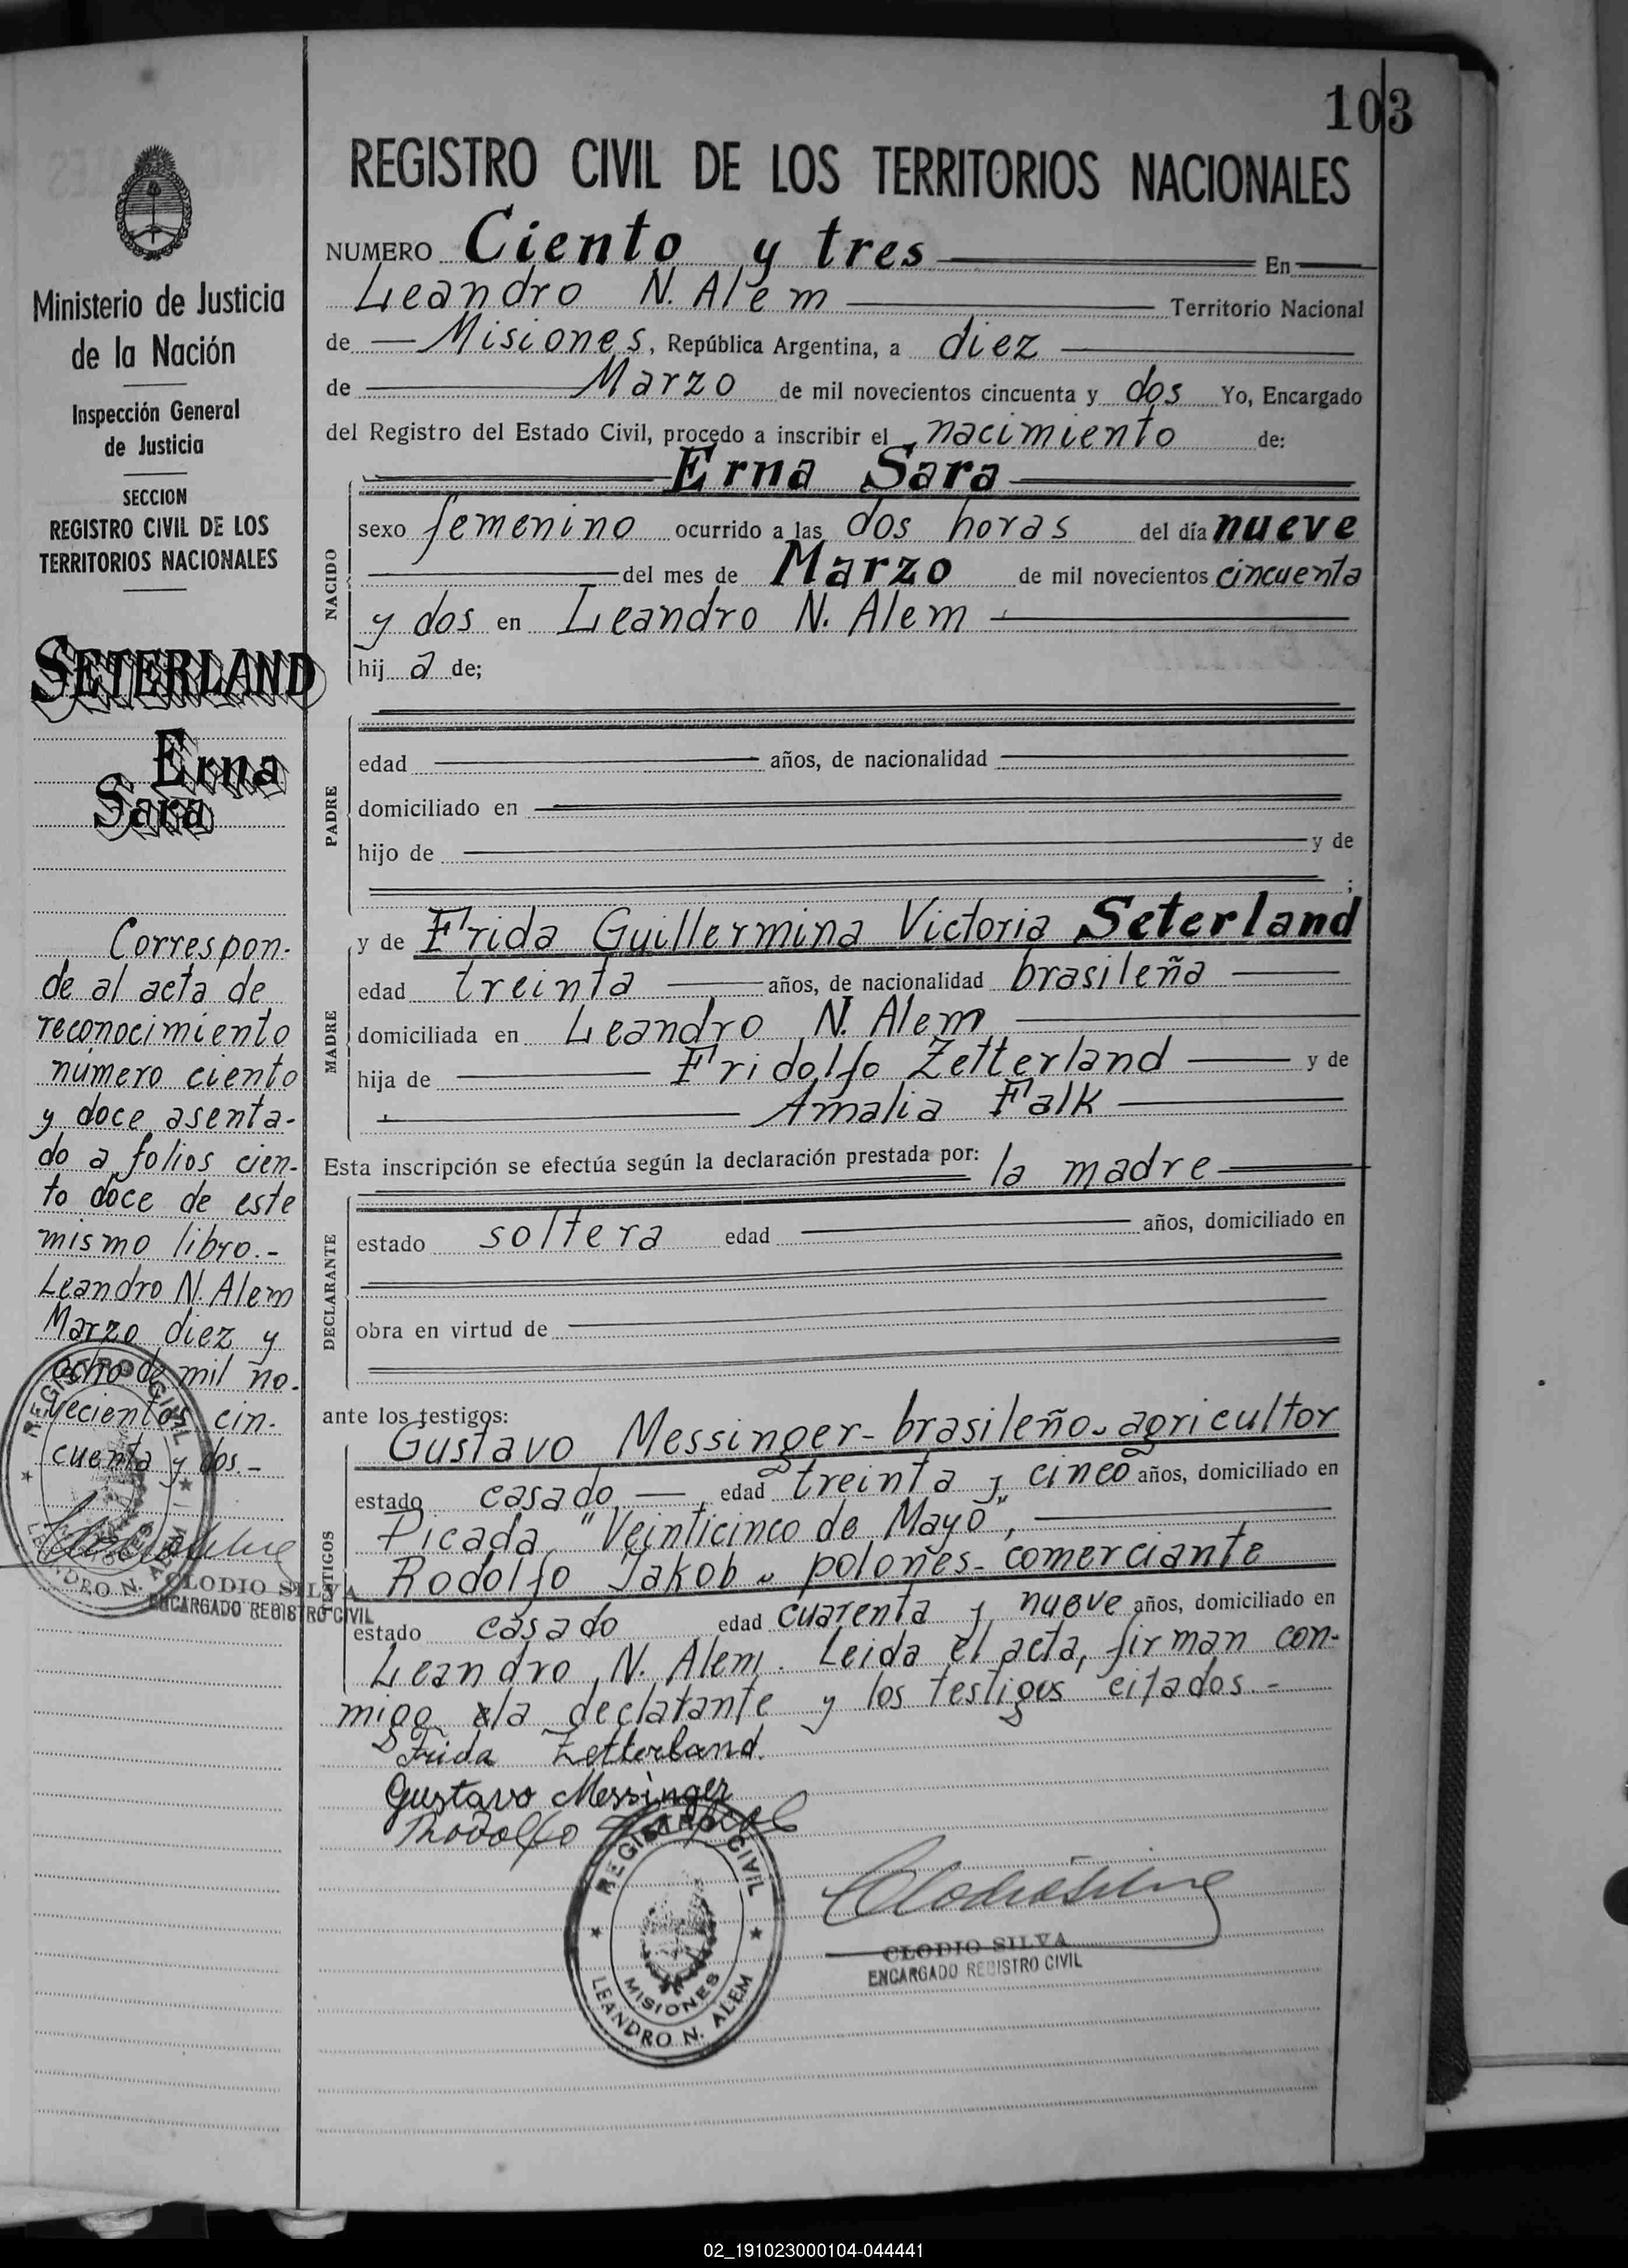 103
Ministerio de Justicia
de la Nación
Inspección General
de Justicia
SECCION
REGISTRO CIVIL DE LOS
TERRITORIOS NACIONALES
SETERLAND
Erna
Sara
Correspon-
de al acta de
reconocimiento
número ciento
y doce asenta-
do a folios cien-
to doce de este
mismo libro.-
Leandro N. Alem
Marzo diez y
ocho de mil no-
vecientos cin-
cuenta y dos.-
REGISTRO CIVIL
LEANDRO N. ALEM
CLODIO SILVA
ENCARGADO REGISTRO CIVIL
REGISTRO CIVIL DE LOS TERRITORIOS NACIONALES
NUMERO Ciento y tres En
Leandro N. Alem Territorio Nacional
de Misiones, República Argentina, a diez
de Marzo de mil novecientos cincuenta y dos Yo, Encargado
del Registro del Estado Civil, procedo a inscribir el nacimiento de:
Erna Sara
NACIDO
sexo femenino ocurrido a las dos horas del día nueve
del mes de Marzo de mil novecientos cincuenta
y dos en Leandro N. Alem
hij a de;
PADRE
edad años, de nacionalidad
domiciliado en
hijo de y de
;
MADRE
y de Frida Guillermina Victoria Seterland
edad treinta años, de nacionalidad brasileña
domiciliada en Leandro N. Alem
hija de Fridolfo Zetterland y de
Amalia Falk
Esta inscripción se efectúa según la declaración prestada por: la madre
DECLARANTE
estado soltera edad años, domiciliado en
obra en virtud de
ante los testigos:
TESTIGOS
Gustavo Messinger- brasileño- agricultor
estado casado edad treinta y cinco años, domiciliado en
Picada "Veinticinco de Mayo",
Rodolfo Jakob - poloñes- comerciante
estado casado edad cuarenta y nueve años, domiciliado en
Leandro N. Alem. Leida el acta, firman con-
migo la declarante y los testigos citados.-
Frida Zetterland.
Gustavo Messinger
Rodolfo Jakob
REGISTRO CIVIL
MISIONES
LEANDRO N. ALEM
Clodio Silva
CLODIO SILVA
ENCARGADO REGISTRO CIVIL
02_191023000104-044441